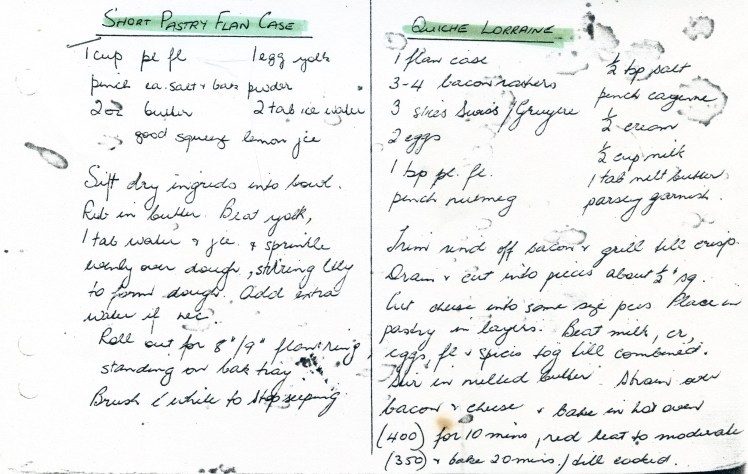 SHORT PASTRY FLAN CASE
1 cup pl fl 1 egg yolk
pinch ea. salt + bak powder
2 oz butter 2 tab ice water
good squeeze lemon jce
Sift dry ingreds into bowl.
Rub in butter. Beat yolk,
1 tab water + jce. + sprinkle
evenly over dough, stirring ltly
to form dough. Add extra
water if nec.
Roll out for 8"/9" flan ring,
standing on bak tray.
Brush c white to stop seeping
QUICHE LORRAINE
1 flan case ½ tsp salt
3-4 bacon rashers pinch cayenne
3 slices Swiss/Gruyere ½ cream
2 eggs ½ cup milk
1 tsp pl. fl. 1 tab melt butter
pinch nutmeg parsley garnish.
Trim rind off bacon + grill till crisp.
Drain + cut into pieces about ½" sq.
Cut cheese into same size pces. Place in
pastry in layers. Beat milk, cr,
eggs, fl + spices tog till combined.
Stir in melted butter. Strain over
bacon + cheese + bake in hot oven
(400) for 10 mins, red heat to moderate
(350) + bake 20 mins./till cooked.